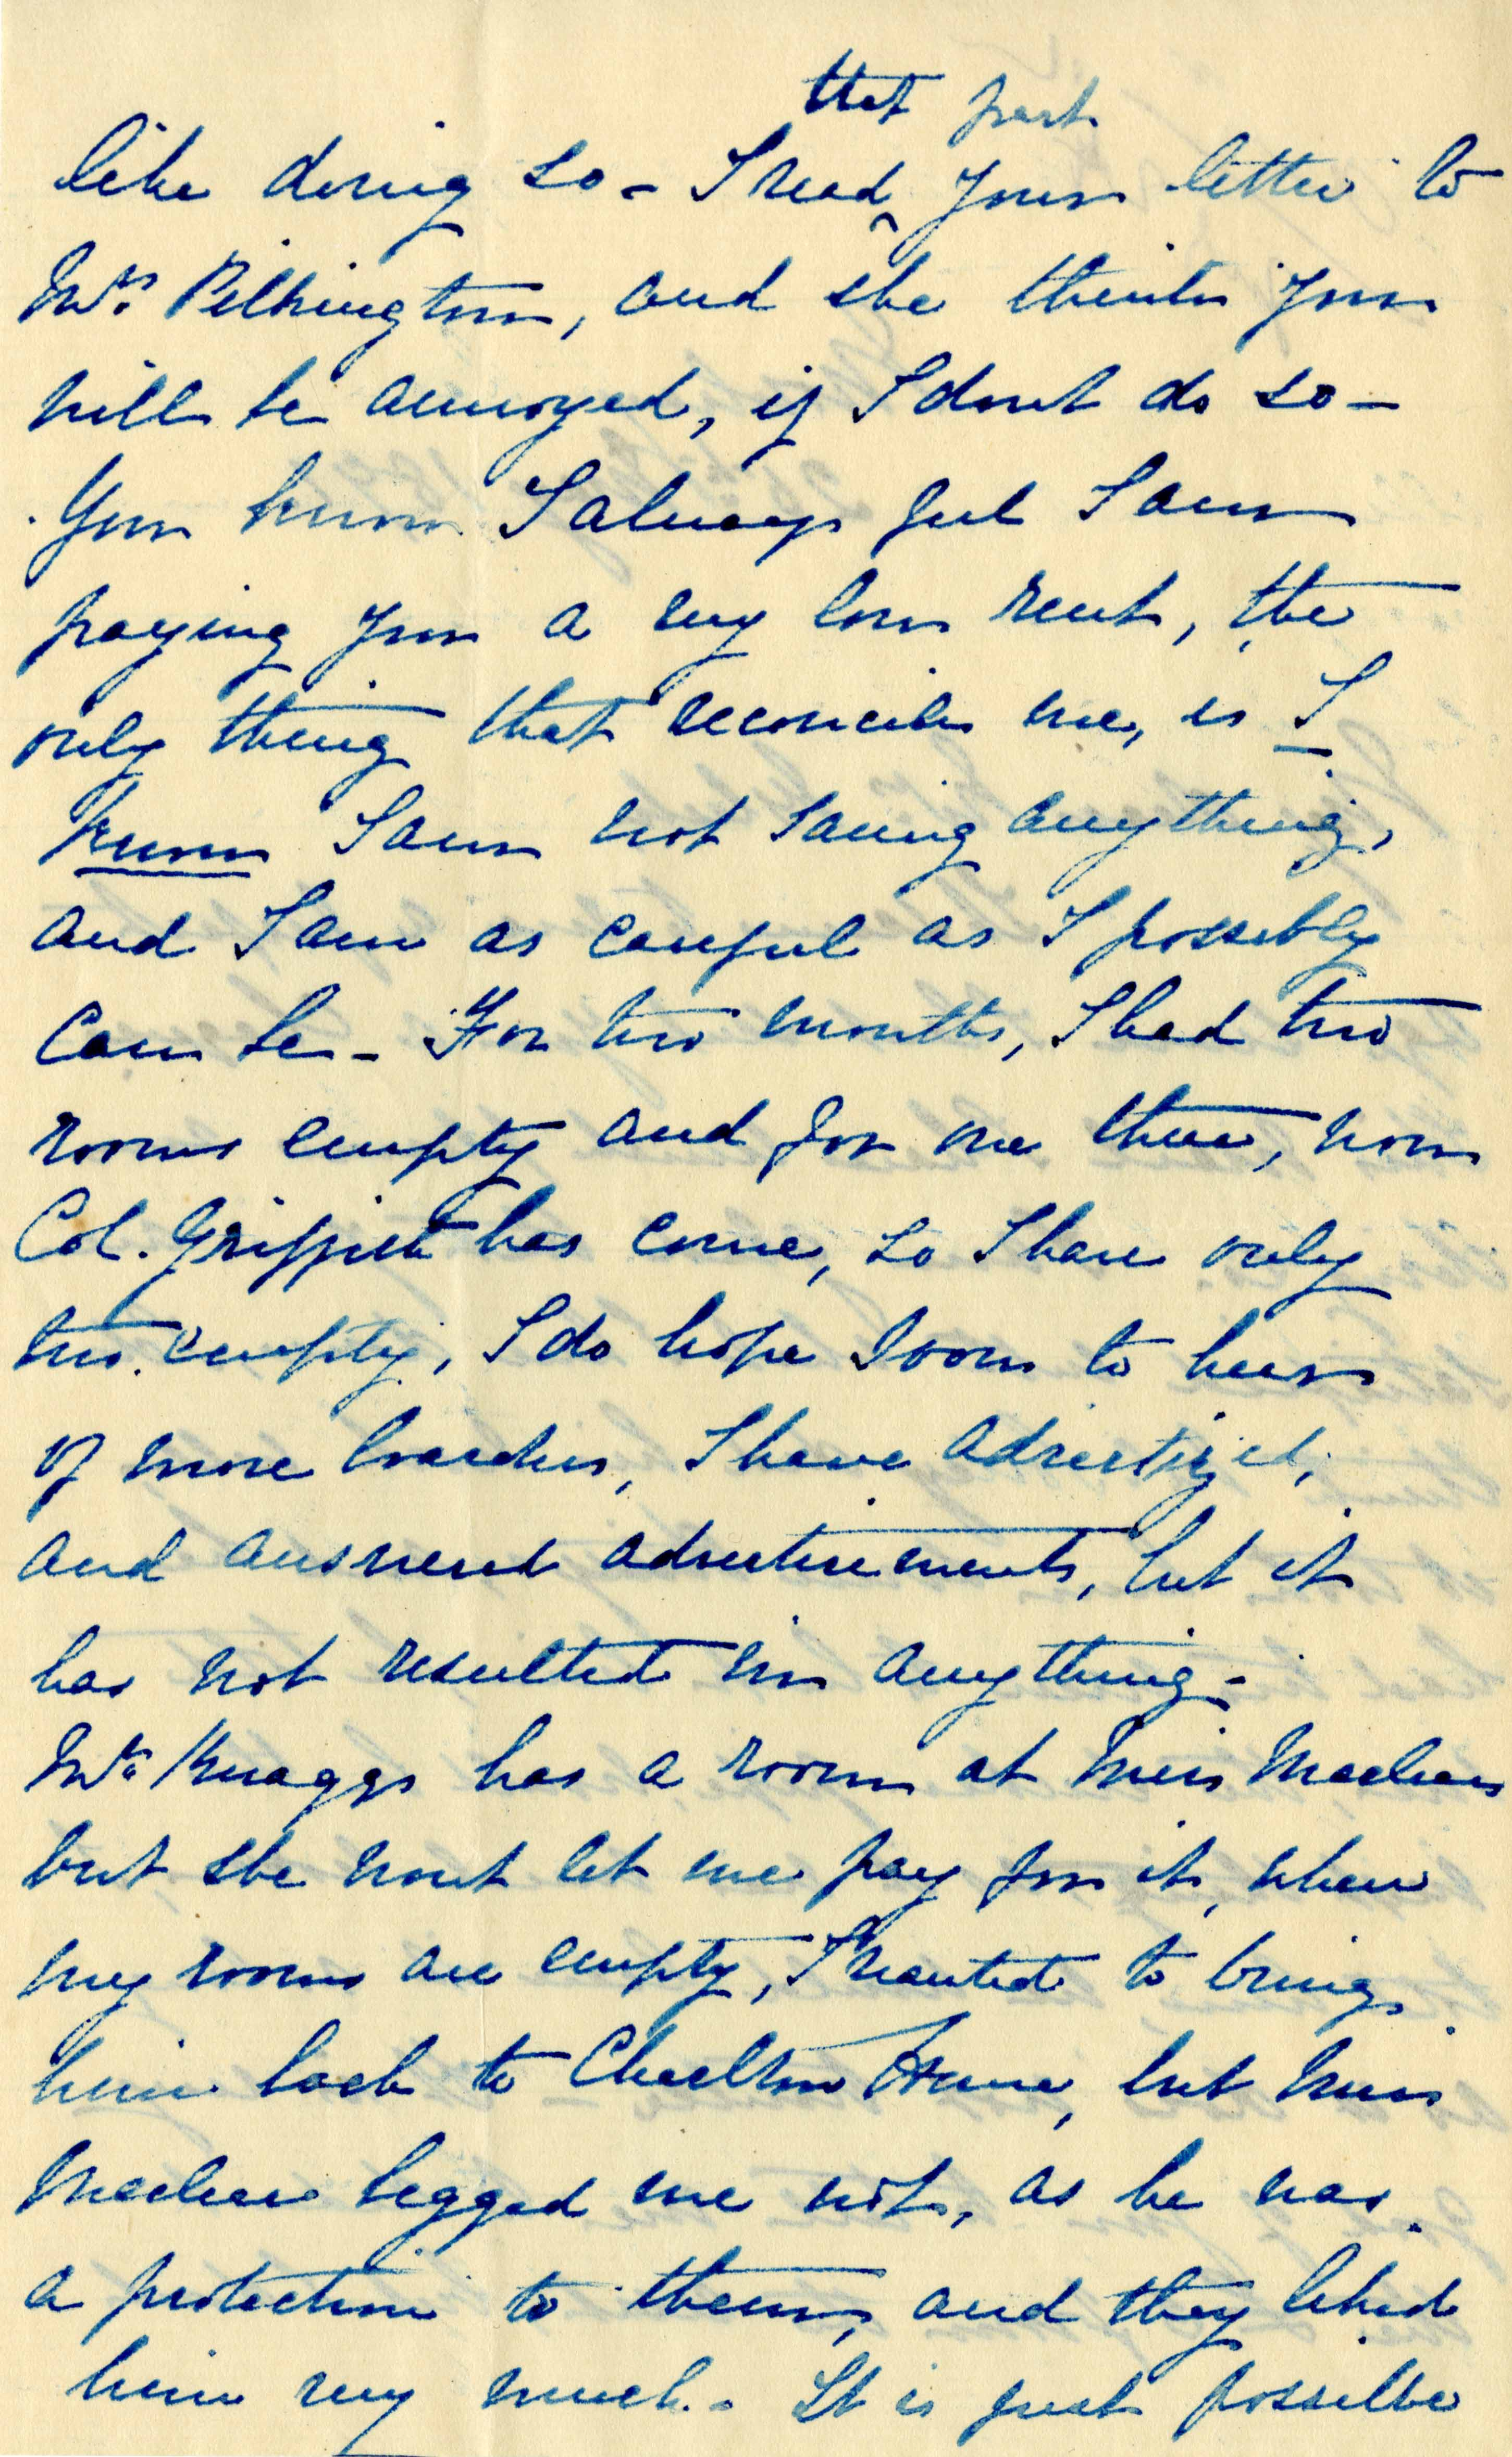 that part
like doing so - I read ^ your letter to
Mrs. Pilkington, and she thinks you
will be annoyed, if I dont do so -
You know I always feel I am
paying you a very low rent, the
only thing that reconciles me, is I
know I am not saving anything,
and I am as careful as I possibly
can be - For two months, I had two
rooms empty and for one three, now
Col. Griffith has come, so I have only
two empty, I do hope soon to hear
of more boarders, I have advertized,
and answered advertisements, but it
has not resulted in anything -
Mr. Knaggs has a room at Miss Macleans
but she wont let me pay for it, when
my rooms are empty, I wanted to bring
him back to Charlton House, but Miss
Maclean begged me not, as he was
a protection to them, and they liked
him very much. - It is just possible